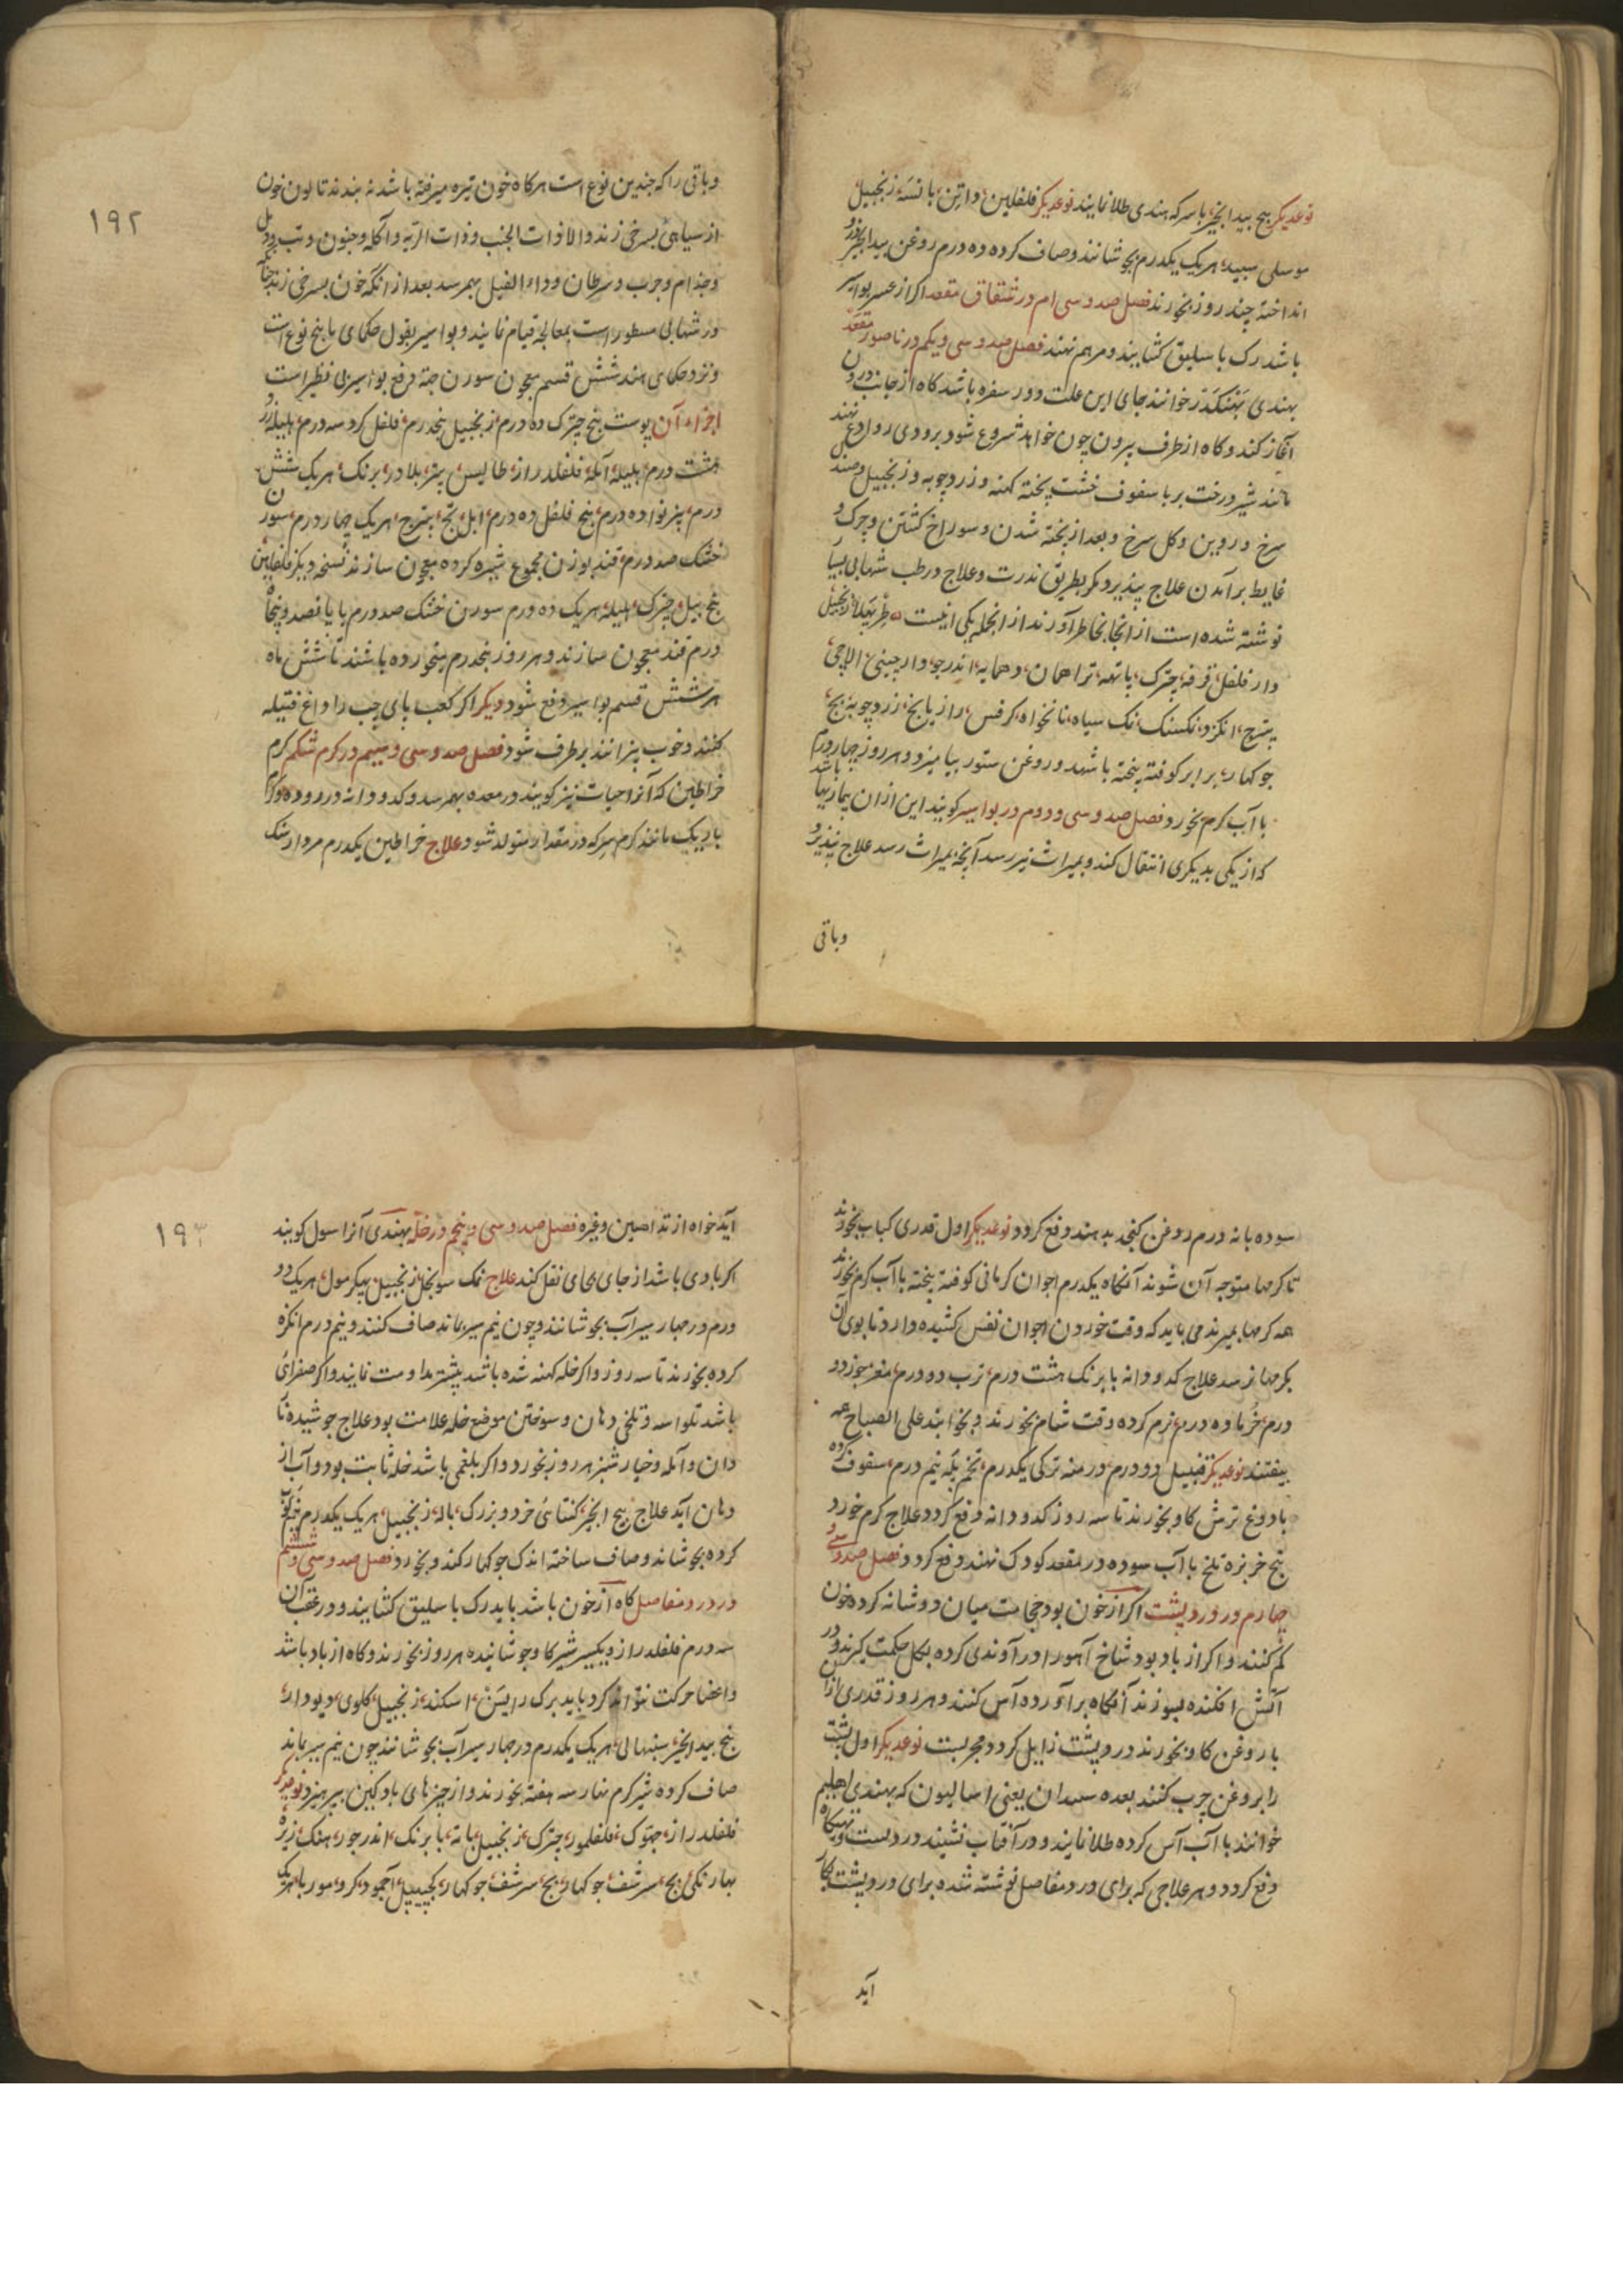 نوعدیکر بیخ بیدانجیر باسرکه هندی طلا نمایند نوعدیکر فلفلین زنجبیل
موسلی سپید هریک یکدرم بجوشانند وصاف کرده ده درم روغن بیدانجیر
انداخته چند روز بخورند فصل صد و سی ام در شقاق مقعد اکر از بواسیر
باشد رک باسلیق کشایند و مرهم نهند فصل صد و سی و یکم در ناصور مقعد
بهندی خوانند جای این علت دور سفره باشد کاه از جانب درون
آغاز کند و کاه از طرف بیرون چون خواهد شروع شود برودی نهند
مانند شیر درخت بر با سفوف خشت پخته کهنه و زردچوبه و زنجبیل
سرخ و روین و کل سرخ و بعد از پخته شدن و سوراخ کشتن و چرک و
غایط برآمدن علاج پذیر و مکر بطریق ندرت و علاج در طب شهابی بسیار
نوشته شده است از انجا بخاطر آورند از انجمله یکی اینست زنجبیل
دارفلفل قرفه چترک دارچینی الاچی
انکزد نمک سیاه نانخواه کرفس رازیانج زردچوبه بج
جوکهار برابر کوفته پخته با شهد و روغن ستور بیامیزد و هر روز چهاردرم
با آب کرم بخورد فصل صد و سی و دوم در بواسیر کویند این ازان بیماریها باشد
که از یکی بدیکری انتقال کند و بمیراث نیز رسد آنچه بمیراث رسد علاج نپذیرد و
وباقی
وباقی را که چندین نوع است هرکاه خون تیره میرفته باشد نه بندند تا لون خون
از سیاهی بسرخی زند والا ذوات الجنب وذات الریه وآکله وجنون وتب
وجذام وجرب وسرطان وداء الفیل بهمرسد بعد از انکه خون بسرخی زند
در شهابی مسطور است بمعالجه قیام نمایند و بواسیر بقول حکمای ما پنج نوع است
ونزد حکمای هند شش قسم معجون سورن جهة دفع بواسیر بی نظیر است
اجزاء آن پوست بیخ چترک ده درم زنجبیل پنجدرم فلفل کرد سه درم
هشت درم بلیله آمله فلفلدراز طالیس پتر بلادر برنک هریک شش
درم ده درم بیخ فلفل ده درم هریک چهار درم سورن
خشک صد درم قند بوزن مجموع شیره کرده معجون سازند نسخه دیکر فلفلین
چترک هلیله هریک ده درم سورن خشک صد درم
درم قند معجون سازند و هر روز پنجدرم میخورده باشند تا شش ماه
هر شش قسم بواسیر دفع شود دیکر اکر کعب پای چپ را داغ فتیله
کنند و خوب پزانند برطرف شود فصل صد و سی و سیم در کرم شکم کرم
خراطین که آنرا حیات نیز کویند در معده بهمرسد و کدودانه در روده
باریک مانند کرم سرکه در مقعد متولد شود علاج خراطین یکدرم مردارسنک
۱۹۲
سوده بانه درم روغن کنجد بدهند دفع کردد نوعدیکر اول قدری کباب بخورند
تا کرمها متوجه آن شوند آنکاه یکدرم اجوان کرمانی کوفته پخته با آب کرم بخورند
همه کرمها بمیرند می باید که وقت خوردن اجوان نفس کشیده دارد تا بوی آن
بکرمها نرسد علاج کدودانه بابرنک هشت درم ترب دو درم مغز جوز دو
درم خرما ده درم نرم کرده وقت شام بخورند و بخوابند علی الصباح همه
بیفتند نوعدیکر قنبیل دو درم درمنه ترکی یکدرم تخم پله نیم درم سفوف کرده
با دوغ ترش کاو بخورند تا سه روز کدودانه دفع کردد علاج کرم خورد
بیخ خربزه تلخ با آب سوده در مقعد کودک نهند دفع کردد فصل صد و سی و
چهارم در درد پشت اکر از خون بود حجامت میان دو شانه کرده خون
کم کنند و اکر از باد بود شاخ آهو را در آوندی کرده بکل حکمت کیرند و در
آتش افکنده بسوزند آنکاه برآورده آس کنند و هر روز قدری ازان
با روغن کاو بخورند درد پشت زایل کردد مجربست نوعدیکر اول پشت
را بروغن چرب کنند بعده یعنی که بهندی
خوانند با آب آس کرده طلا نمایند و در آفتاب نشینند درد پشت
دفع کردد و هر علاجی که برای درد مفاصل نوشته شده برای درد پشت بکار
آید
آید خواه از تداهین و غیره فصل صد و سی و پنجم در خله بهندی آنرا سول کویند
اکر بادی باشد از جای بجای نقل کند علاج نمک سونچل زنجبیل هریک دو
درم در چهار سیر آب بجوشانند و چون نیم سیر بماند صاف کنند و نیم درم انکزه
کرده بخورند تا سه روز و اکر خله کهنه شده باشد بیشتر مداومت نمایند و اکر صفرای
باشد تلواسه و تلخی دهان و سوختن موضع خله علامت بود علاج جوشیده
وآمله و خیارشنبر هر روز بخورد و اکر بلغمی باشد خله ثابت بود و آب از
دهان آید علاج بیخ انجیر کنتائی خرد و بزرک زنجبیل هریک یکدرم
کرده بجوشاند و صاف ساخته اندک جوکهار کند و بخورد فصل صد و سی و ششم
در درد مفاصل کاه از خون باشد باید رک باسلیق کشایند و در عقب آن
سه درم فلفلدراز و یکسیر شیر کاو جوشانیده هر روز بخورند و کاه از باد باشد
و اعضا حرکت نتواند کرد باید برک راسن اسکند زنجبیل کلوی دیودار
بیخ بیدانجیر سنبهالی هریک یکدرم در چهار سیر آب بجوشانند چون نیم سیر بماند
صاف کرده شیر کرم نهار سه هفته بخورند و از چیزهای بادکین بپرهیزد نوعدیکر
فلفلدراز فلفلمور چترک زنجبیل بابرنک اندرجو هنک زیره
بهارنکی بج سرشف جوکهار بج سرشف جوکهار کجپیپل اجمود
۱۹۳